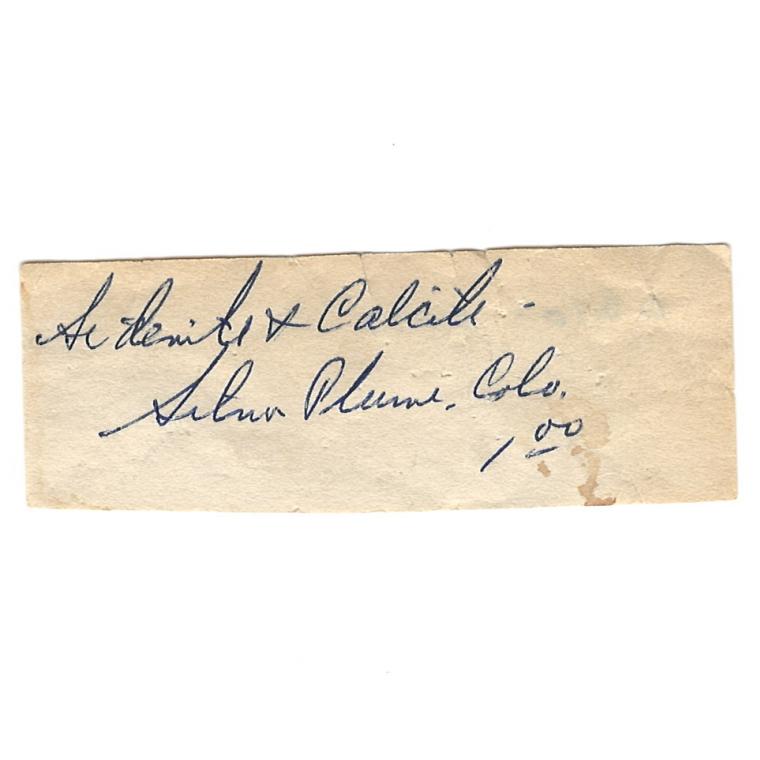 Siderite & Calcite -
Silver Plume, Colo.
1.00